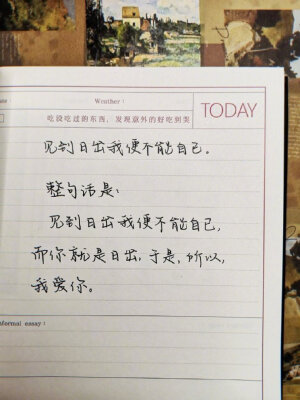 Weather:
吃没吃过的东西,发现意外的好吃到哭
TODAY
见到日出我便不能自已。
整句话是:
见到日出我便不能自已,
而你就是日出,于是,所以,
我爱你。
nformal essay: